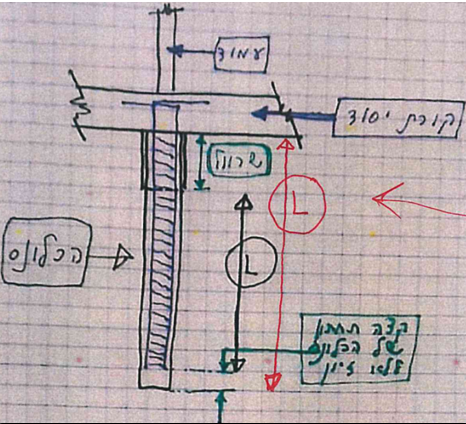 עמוד
קורת יסוד
שרוול
L
L
הכלונס
קצה תחתון
של הכלונס
ללא זיון